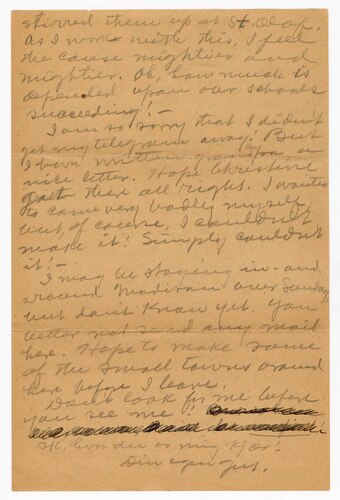 stirred them up at St. Olaf.
As I work with this, I feel
the cause mightier and
mightier. Oh, how much is
depended upon our schools
succeeding! -
I am so sorry that I didn't
get my telegram away! But
I have written grandpa a
nice letter. Hope Christine
gett there all right. I wanted
to come very badly myself,
but of course, I couldn't
make it! Simply couldn't
it! -
I may be staying in - and
around Madison over Sunday
but don't know yet. You
better not send any mail
here. Hope to make some
of the small towns around
here before I leave.
Don't look for me before
you see me!
min
Din egen